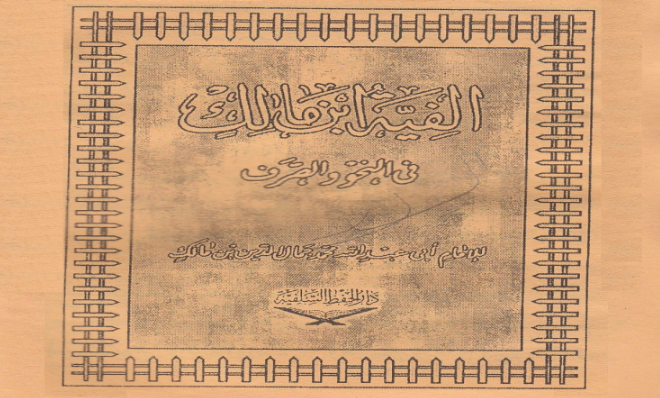 ألفية ابن مالك
في النحو والصرف
للإمام أبي عبد الله محمد جمال الدين بن مالك
دار الحفظ السلفية